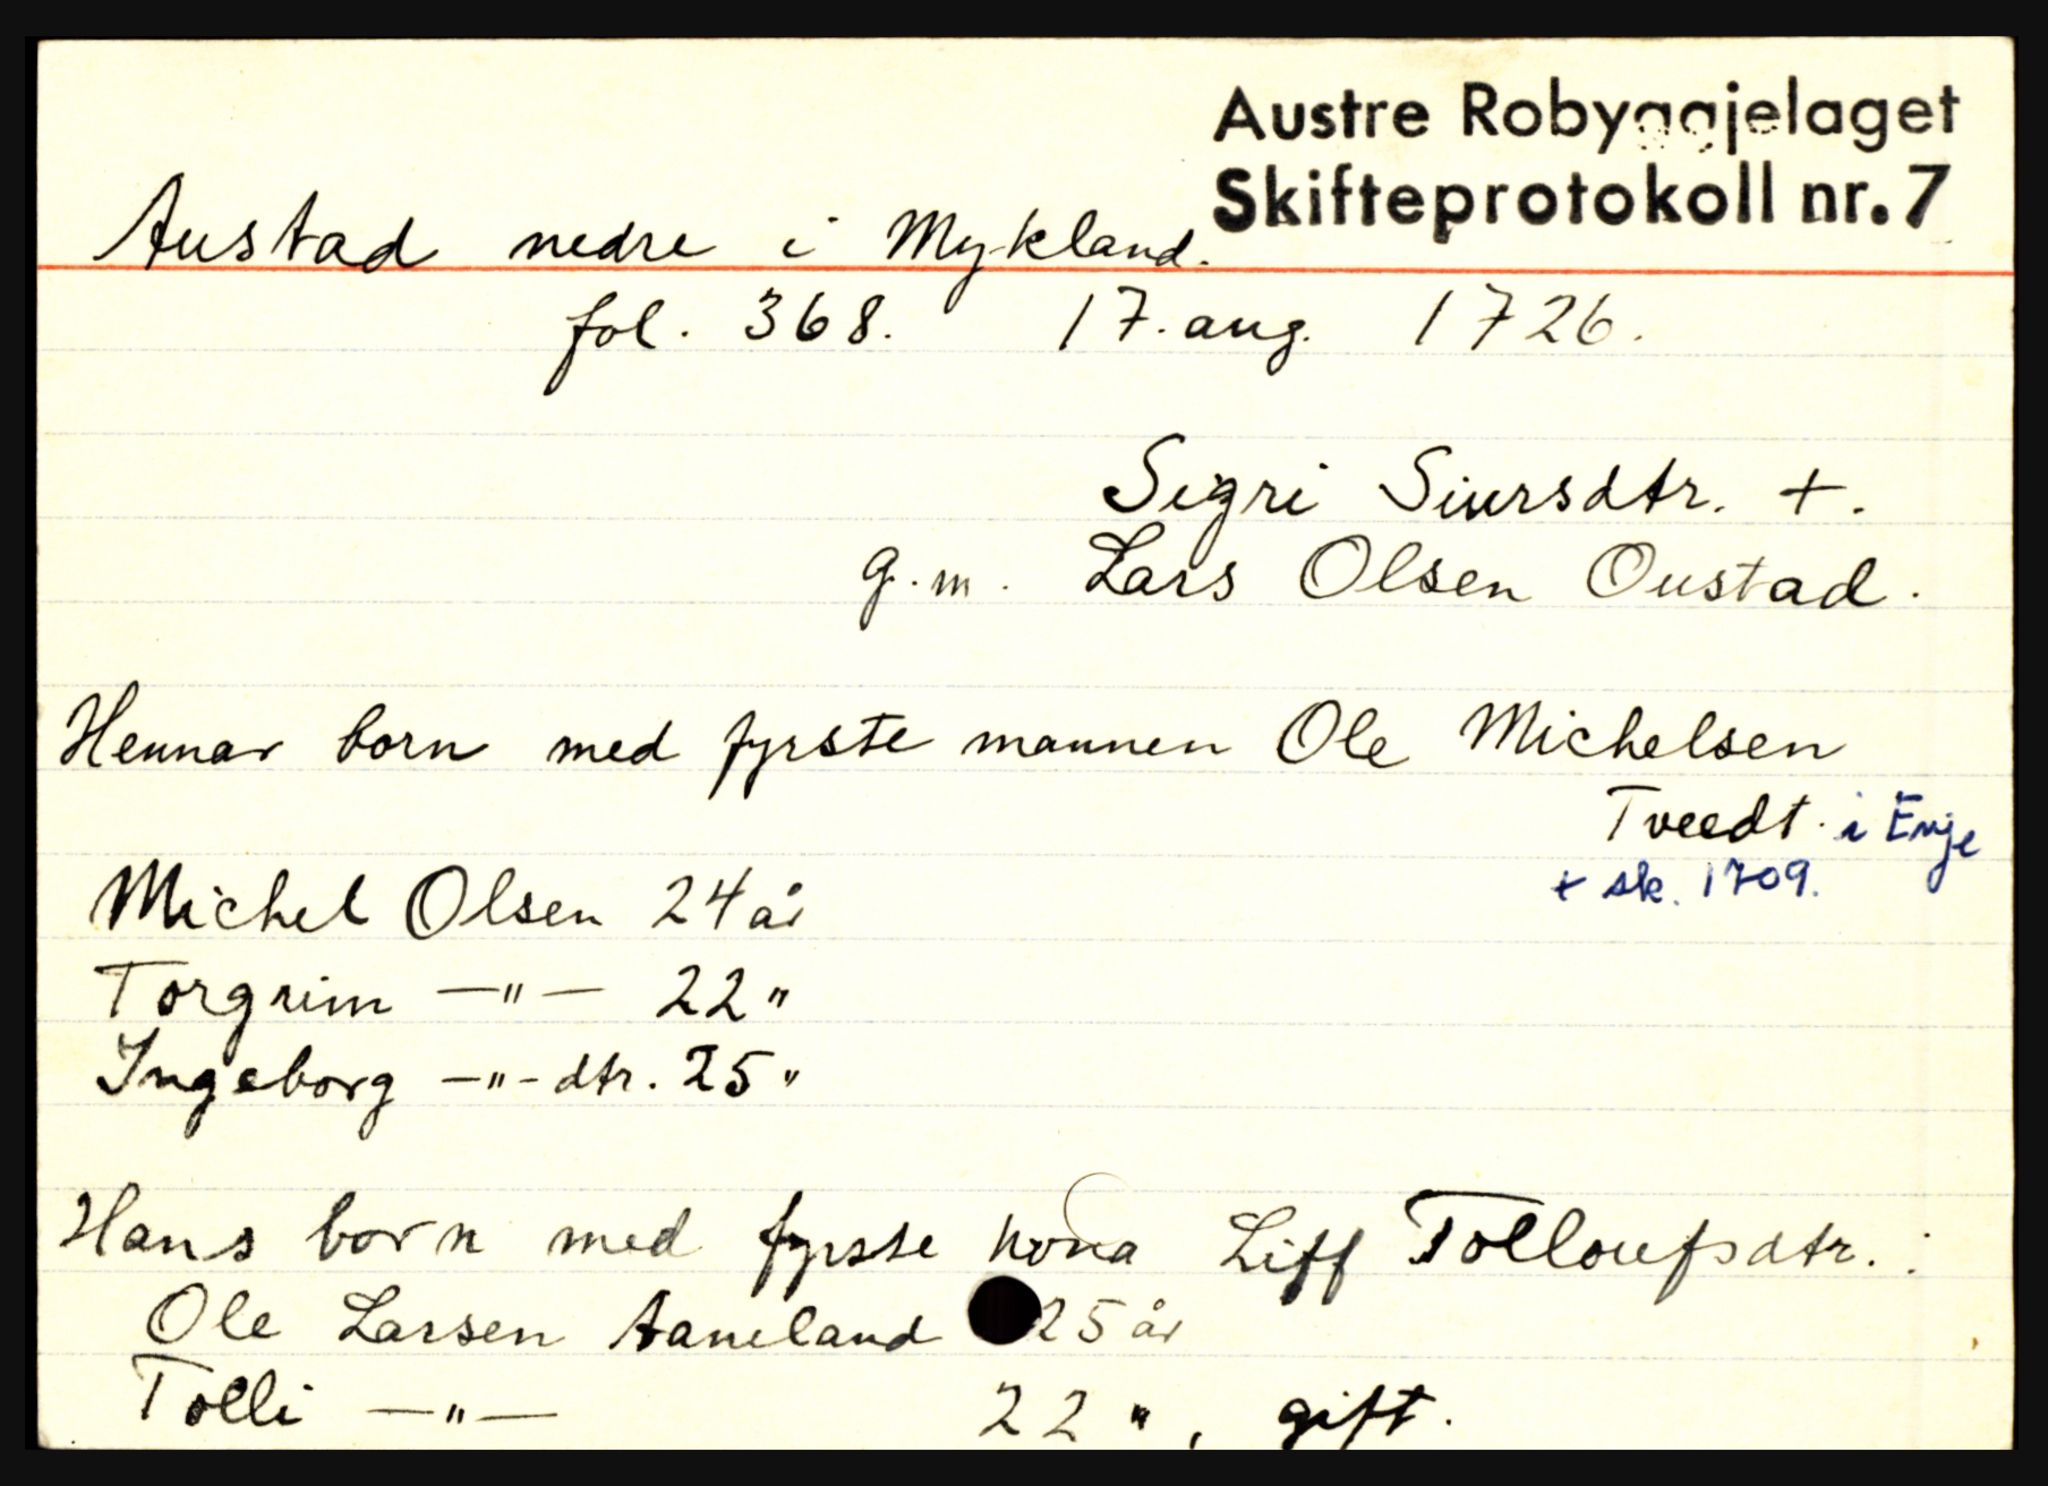 Austre Robyggjelaget
Skifteprotokoll nr. 7
Austad nedre i Mykland.
fol. 368. 17. aug. 1726.
Sigri Siursdtr. +.
g.m. Lars Olsen Oustad.
Hennar born med fyrste mannen Ole Michelsen
Tveedt. i Evje
+ sk. 1709.
Michel Olsen 24 år
Torgrim —"— 22 "
Ingeborg —"— dtr. 25 "
Hans born med fyrste kona Liff Tolloufsdtr. :
Ole Larsen Aaneland 25 år
Tolli —"— 22 ", gift.